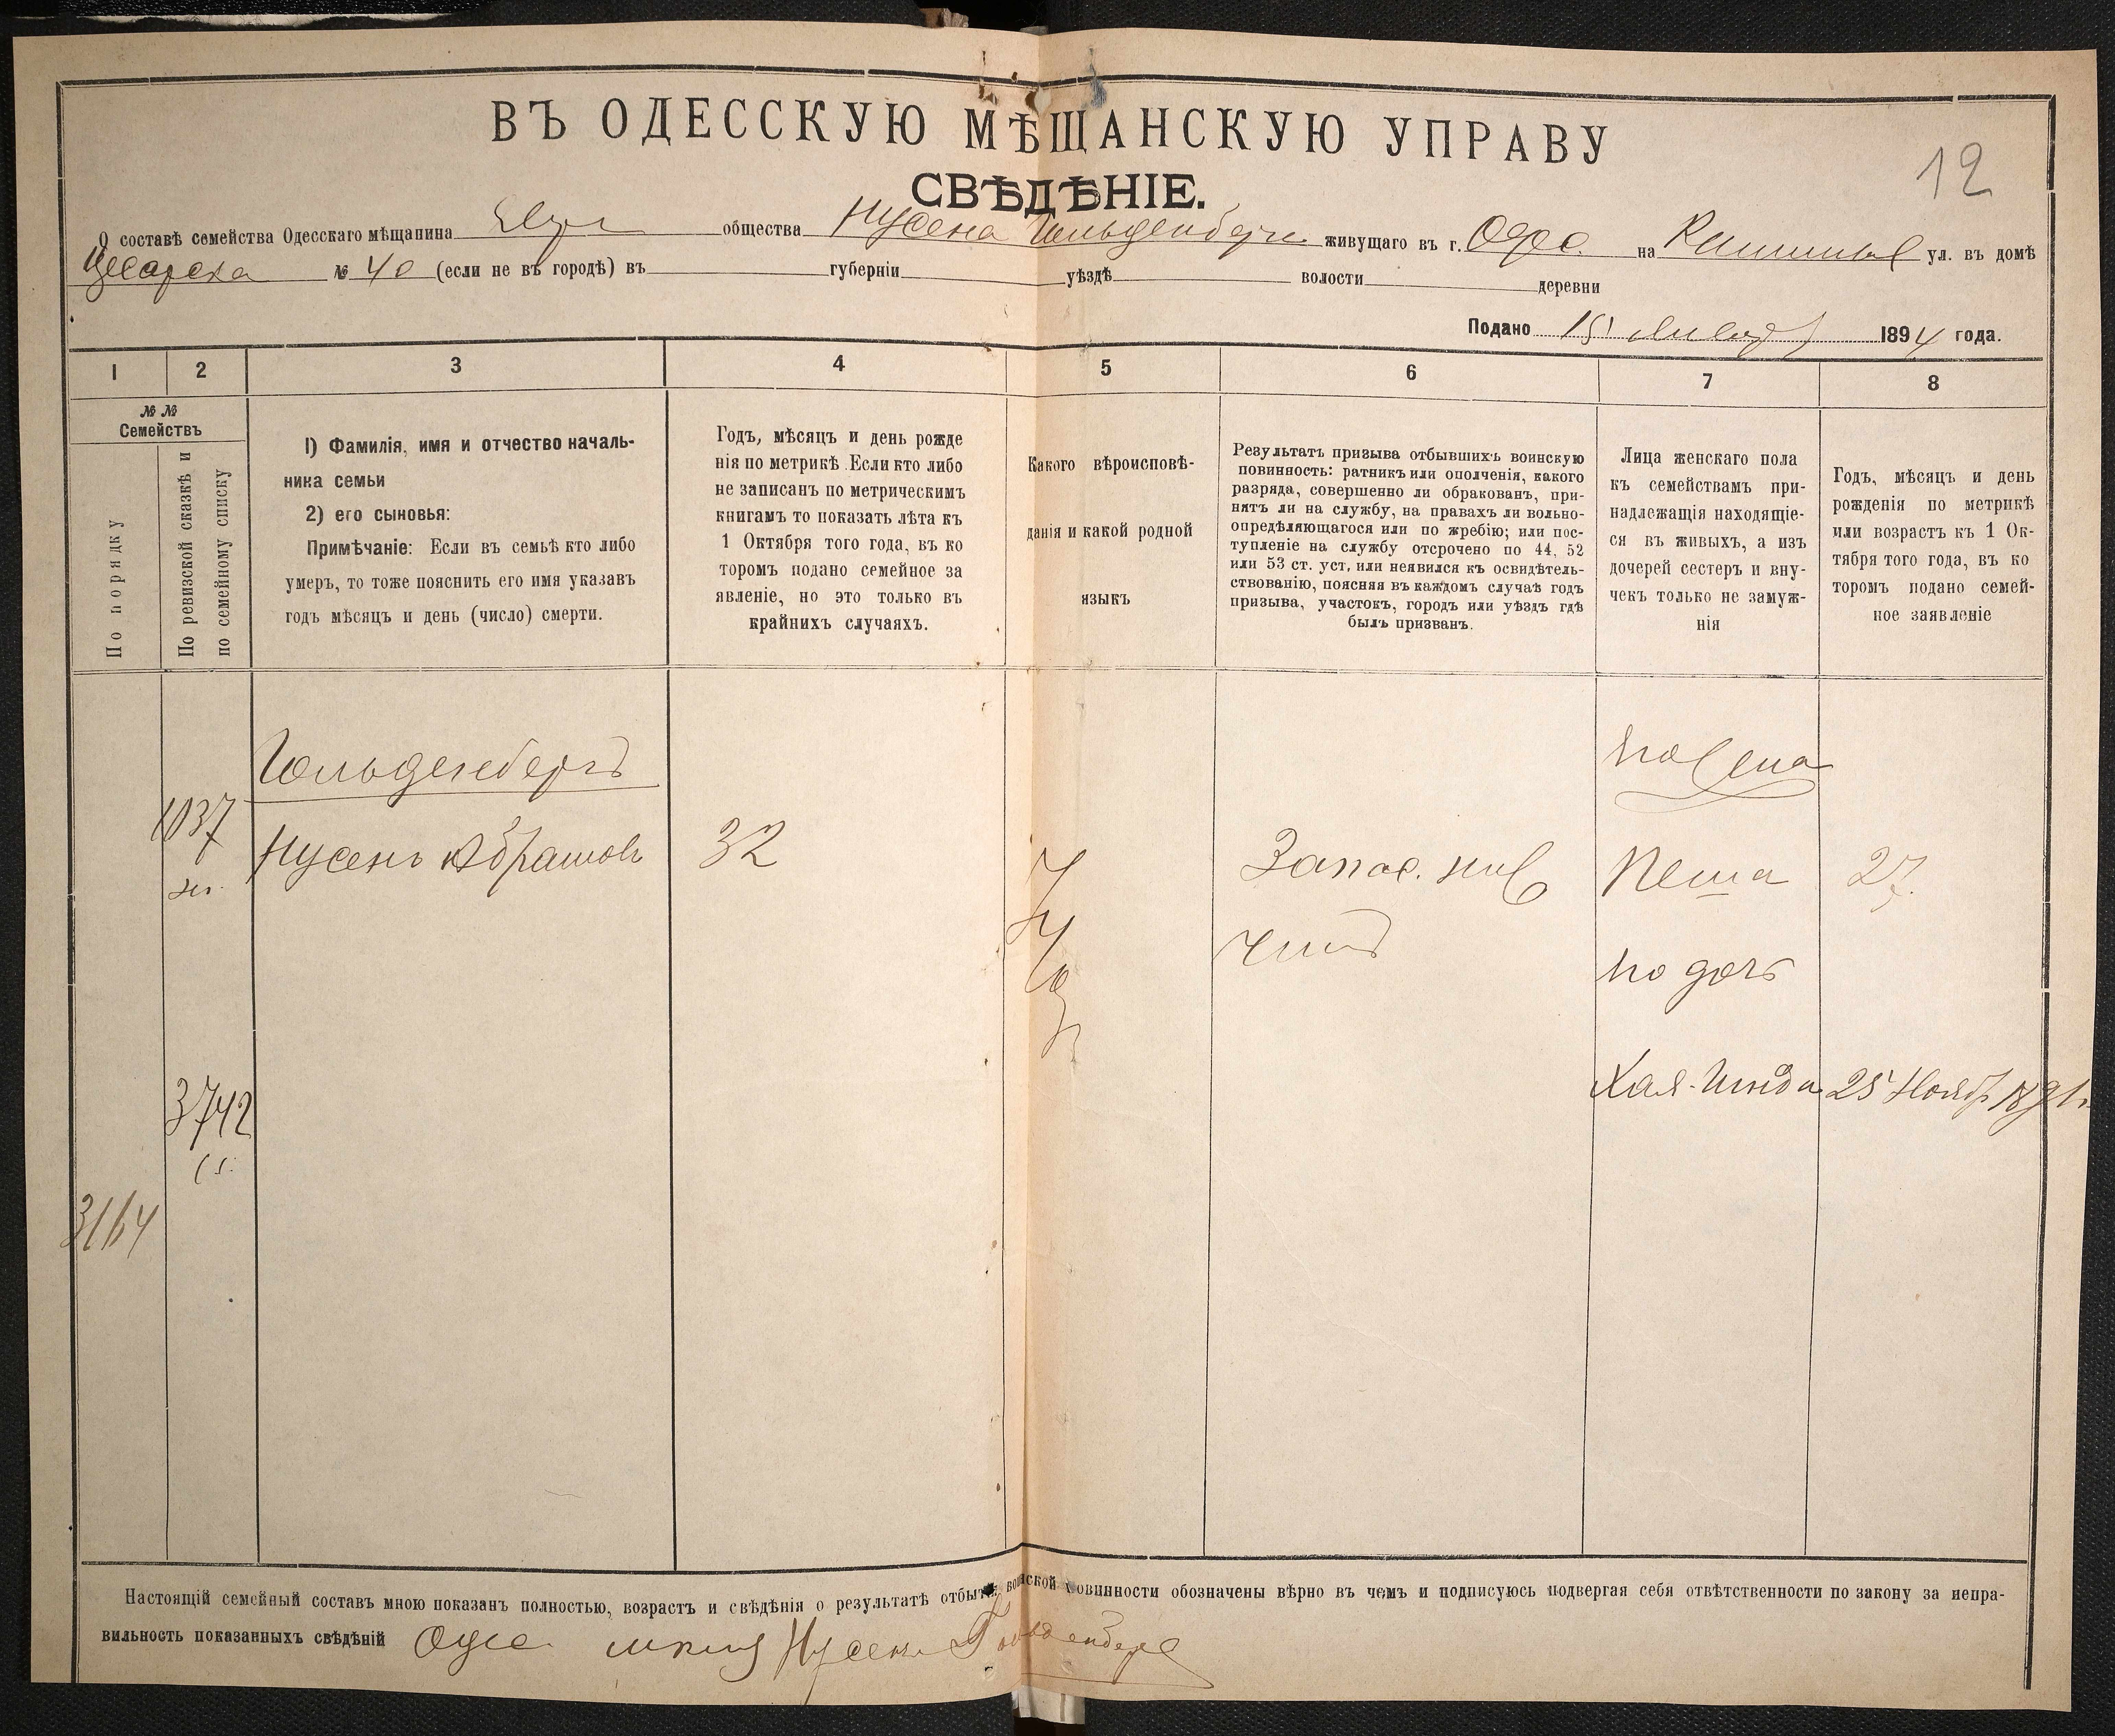 12
ВЪ ОДЕССКУЮ МѢЩАНСКУЮ УПРАВУ
СВѢДѢНІЕ.
О составѣ семейства Одесскаго мѣщанина общества Нусена Гольденберга живущаго въ г. Одес. на ул. въ домѣ
№ 40 (если не въ городѣ) въ губерніи уѣздѣ волости деревни
Подано 15 1894 года.
1 2 3 4 5 6 7 8
№ №
Семействъ
По порядку
По ревизской сказкѣ и
по семейному списку
1) Фамилія, имя и отчество началь-
ника семьи
2) его сыновья:
Примѣчаніе: Если въ семьѣ кто либо
умеръ, то тоже пояснить его имя указавъ
годъ мѣсяцъ и день (число) смерти.
Годъ, мѣсяцъ и день рожде
нія по метрикѣ Если кто либо
не записанъ по метрическимъ
книгамъ то показать лѣта къ
1 Октября того года, въ ко
торомъ подано семейное за
явленіе, но это только въ
крайнихъ случаяхъ.
Какого вѣроисповѣ-
данія и какой родной
языкъ
Результатъ призыва отбывшихъ воинскую
повинность: ратникъ или ополченія, какого
разряда, совершенно ли обракованъ, при-
нятъ ли на службу, на правахъ ли вольно-
опредѣляющагося или по жребію; или пос-
тупленіе на службу отсрочено по 44, 52
или 53 ст. уст, или неявился къ освидѣтель-
ствованію, поясняя въ каждомъ случаѣ годъ
призыва, участокъ, городъ или уѣздъ гдѣ
былъ призванъ.
Лица женскаго пола
къ семействамъ при-
надлежащія находящіе-
ся въ живыхъ, а изъ
дочерей сестеръ и вну-
чекъ только не замуж-
нія
Годъ, мѣсяцъ и день
рожденія по метрикѣ
или возрастъ къ 1 Ок-
тября того года, въ ко
торомъ подано семей-
ное заявленіе
Гольденбергъ
1037
Нусенъ Абрамовъ
32
Запас.
чинъ
Песа
27.
но дочь
Хая-Динда 25 Ноябр 1891г.
3742
3164
Настоящій семейный составъ мною показанъ полностью, возрастъ и свѣдѣнія о результатѣ отбытія воинской повинности обозначены вѣрно въ чемъ и подписуюсь подвергая себя отвѣтственности по закону за непра-
вильность показанныхъ свѣдѣній Одес. Нусенъ Гольденбергъ